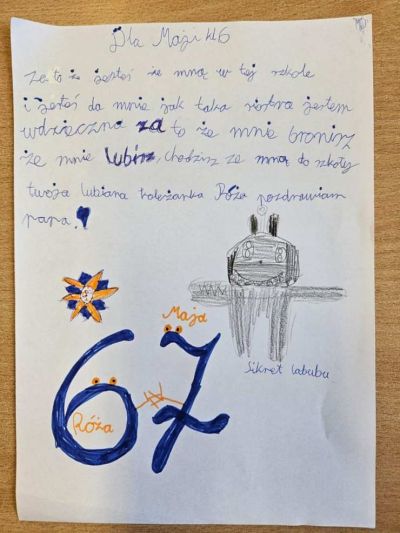 Dla Maji kl6
Za to że jesteś ze mną w tej szkole
i jesteś da mnie jak taka siostra jestem
wdzięczna za to że mnie bronisz
że mnie lubisz, chodzisz ze mną do szkoły
twoja lubiana koleżanka Róża pozdrawiam
papa.
Maja
67
Róża
Sikret labubu